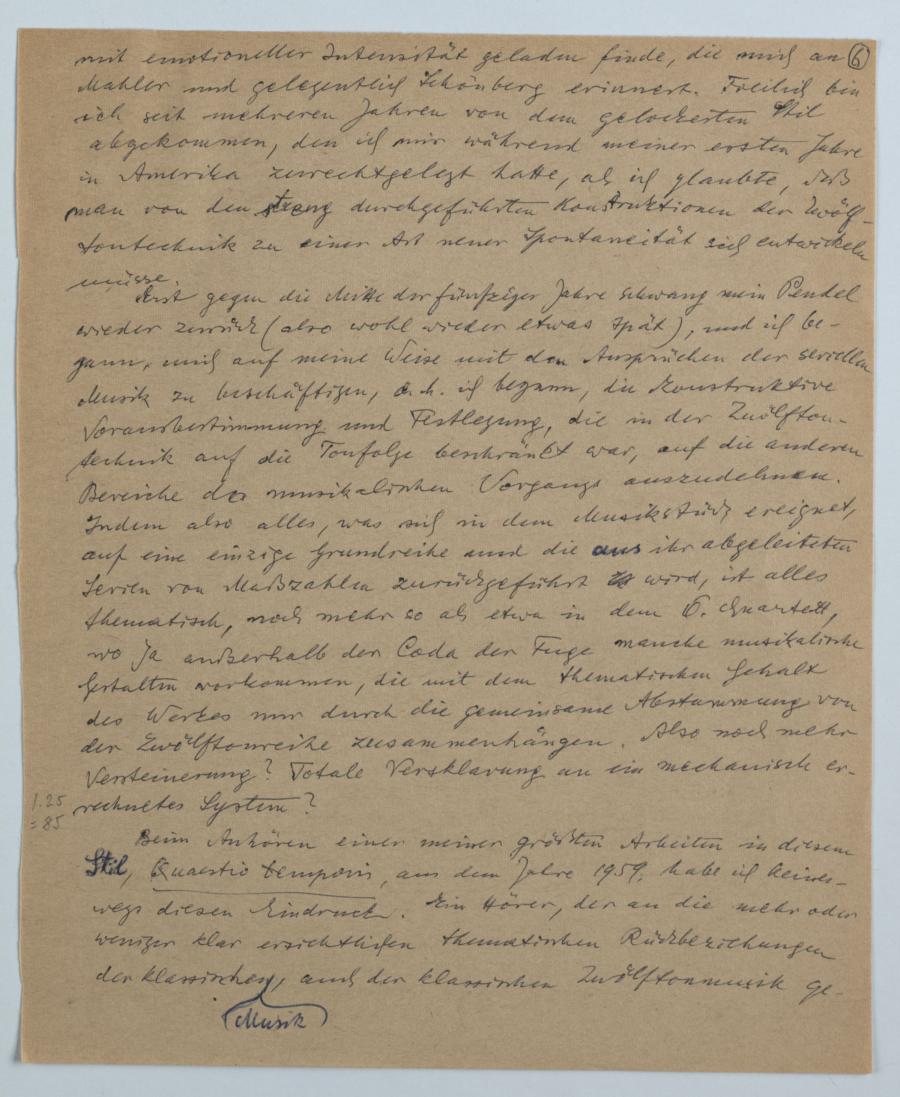 mit emotioneller Intensität geladen finde, die mich an 6
Mahler und gelegentlich Schönberg erinnert. Freilich bin
ich seit mehreren Jahren von dem gelockerten Stil
abgekommen, den ich mir während meiner ersten Jahre
in Amerika zurechtgelegt hatte, als ich glaubte, daß
man von den streng durchgeführten Konstruktionen der Zwölf-
tontechnik zu einer Art neuer Spontaneität sich entwickeln
müsse.
Erst gegen die Mitte der fünfziger Jahre schwang mein Pendel
wieder zurück (also wohl wieder etwas spät), und ich be-
gann, mich auf meine Weise mit den Ansprüchen der seriellen
Musik zu beschäftigen, d.h. ich begann, die konstruktive
Vorausbestimmung und Festlegung, die in der Zwölfton-
technik auf die Tonfolge beschränkt war, auf die anderen
Bereiche des musikalischen Vorgangs auszudehnen.
Indem also alles, was sich in dem Musikstück ereignet,
auf eine einzige Grundreihe und die aus ihr abgeleiteten
Serien von Maßzahlen zurückgeführt wird, ist alles
thematisch, noch mehr so als etwa in dem 6. Quartett,
wo ja außerhalb der Coda der Fuge manche musikalische
Gestalten vorkommen, die mit dem thematischen Gehalt
des Werkes nur durch die gemeinsame Abstammung von
der Zwölftonreihe zusammenhängen. Also noch mehr
Versteinerung? Totale Versklavung an ein mechanisch er-
1.25 rechnetes System?
=85
Beim Anhören einer meiner größten Arbeiten in diesem
Stil, Quaestio temporis, aus dem Jahre 1959, habe ich keines-
wegs diesen Eindruck. Ein Hörer, der an die mehr oder
weniger klar ersichtlichen thematischen Rückbeziehungen
der klassischen, auch der klassischen Zwölftonmusik ge-
(Musik)